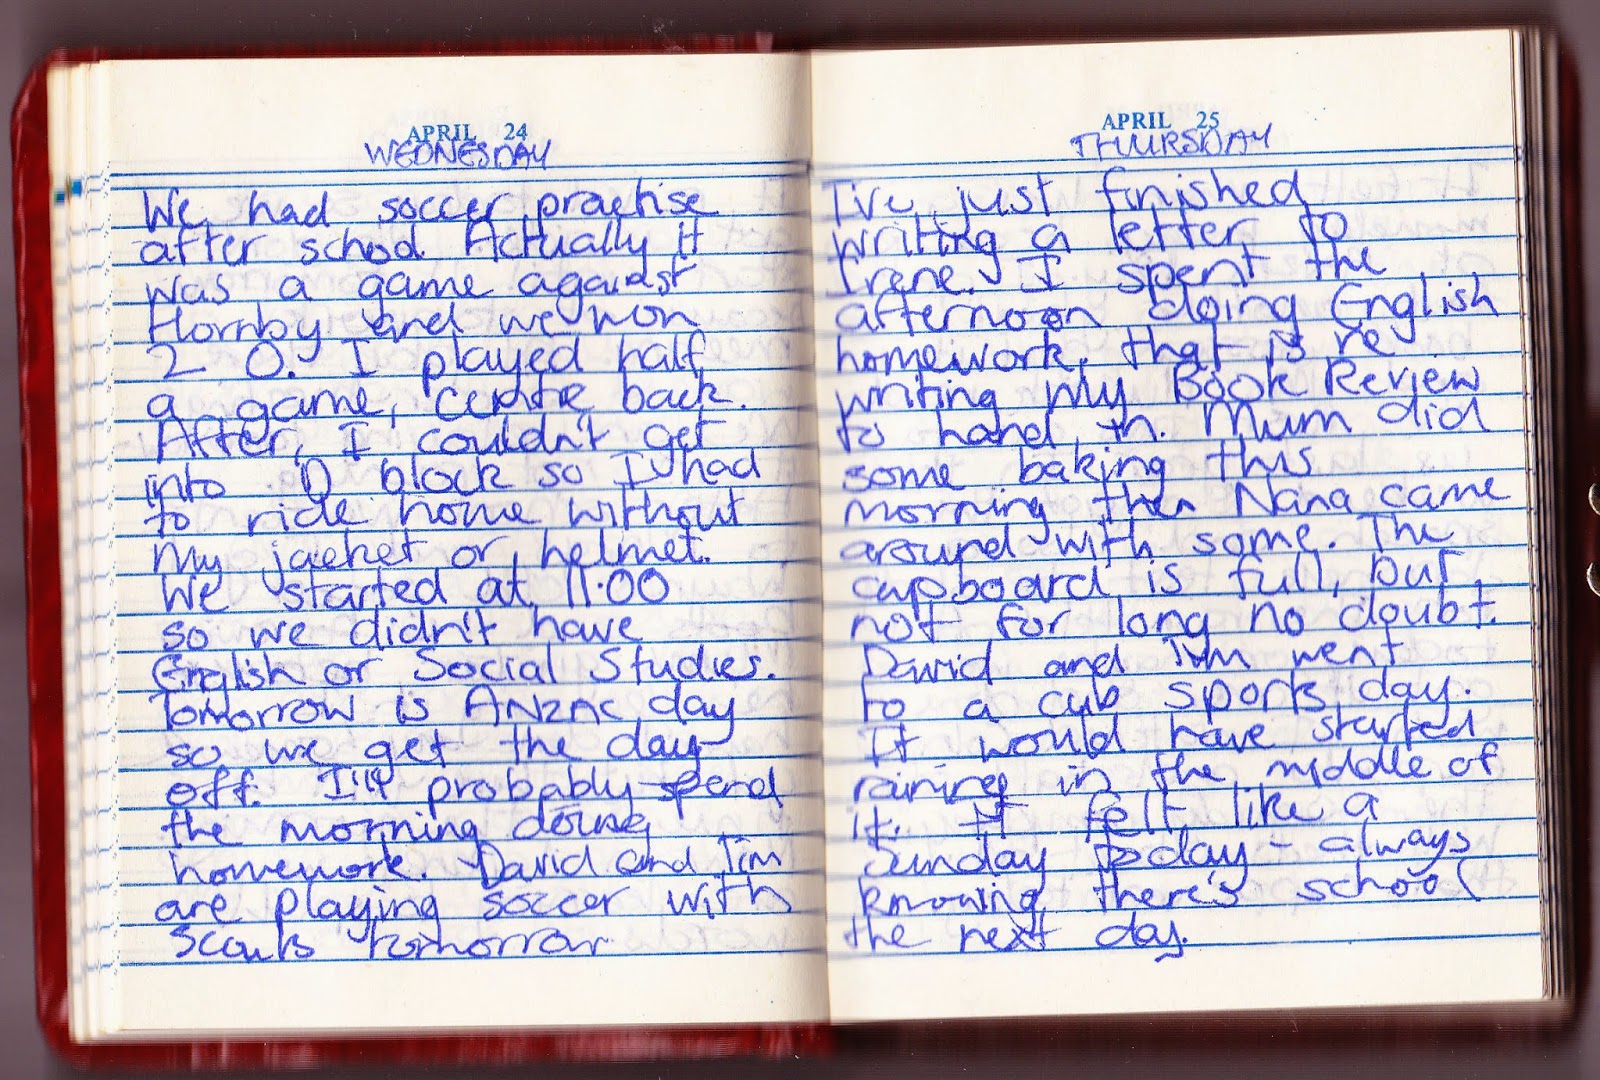 APRIL 24
WEDNESDAY
We had soccer practise
after school. Actually it
was a game against
Hornby and we won
2 0. I played half
a game, centre back.
After, I couldn't get
into D block so I had
to ride home without
my jacket or helmet.
We started at 11.00
so we didn't have
English or Social Studies.
Tomorrow is ANZAC day
so we get the day
off. I'll probably spend
the morning doing
homework. David and Tim
are playing soccer with
Scouts tomorrow
APRIL 25
THURSDAY
I've just finished
writing a letter to
Irene. I spent the
afternoon doing English
homework, that is re
writing my Book Review
to hand in. Mum did
some baking this
morning then Nana came
around with some. The
cupboard is full, but
not for long no doubt.
David and Tim went
to a cub sports day.
It would have started
raining in the middle of
it. It felt like a
Sunday today - always
knowing there's school
the next day.